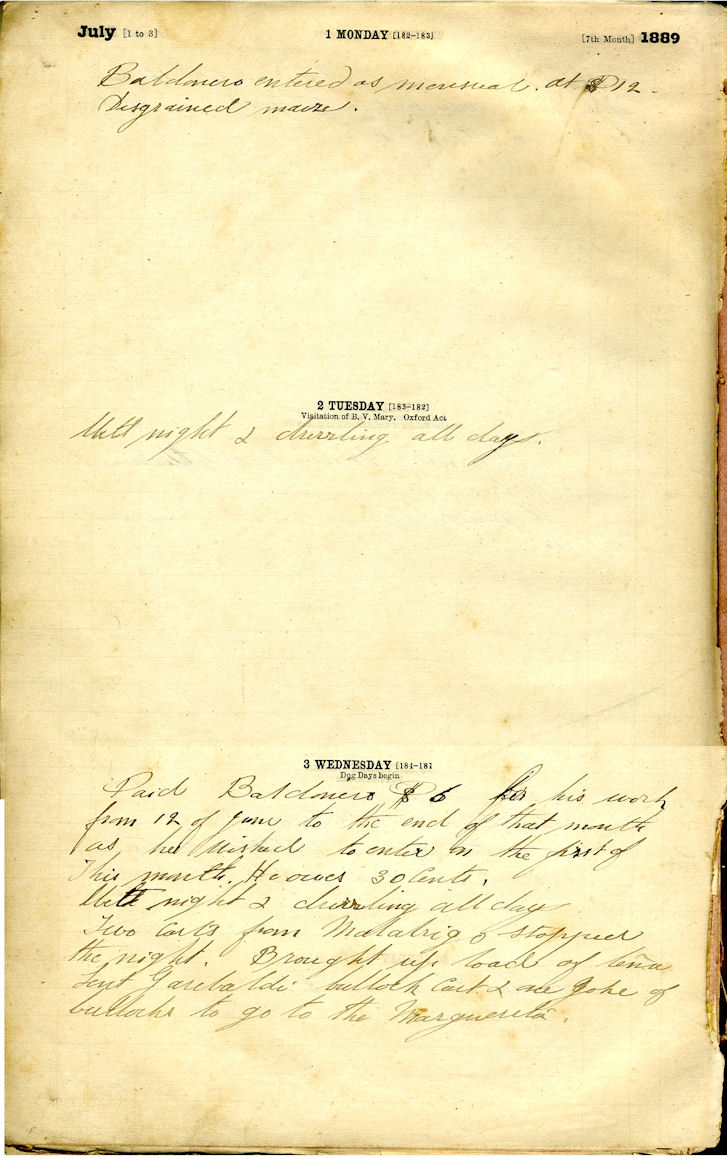 July [1 to 3] 1 MONDAY [182-183] [7th Month] 1889
Baldonero entered as mensual. at $12
Disgrained maize.
2 TUESDAY [183-182]
Visitation of B. V. Mary. Oxford Act
Wett night & drizzling all day.
3 WEDNESDAY [184-181
Dog Days begin
Paid Baldonero $6 for his work
from 12 of June to the end of that month
as he wished to enter on the first of
This month. He owes 30 Cents.
Wett night & drizzling all day
Two Carts from Malabrigo stopped
the night. Brought up load of leña
Lent Garibaldi bullock Cart & one Yoke of
bullocks to go to the Marguerita.